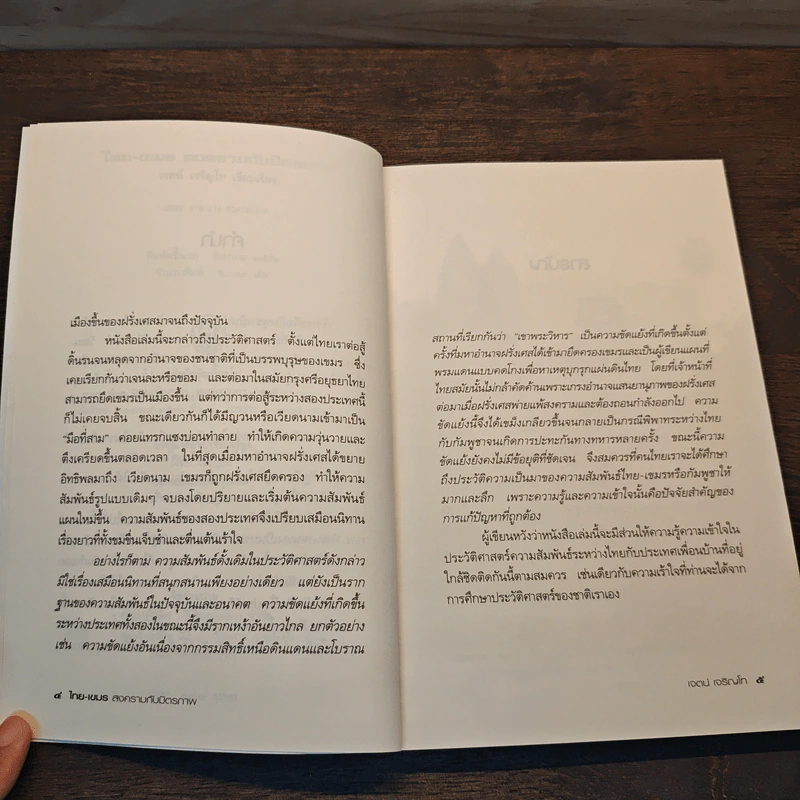 เมืองขึ้นของฝรั่งเศสมาจนถึงปัจจุบัน
หนังสือเล่มนี้จะกล่าวถึงประวัติศาสตร์ ตั้งแต่ไทยเราต่อสู้
ดิ้นรนจนหลุดจากอำนาจของชนชาติที่เป็นบรรพบุรุษของเขมร ซึ่ง
เคยเรียกกันว่าเจนละหรือขอม และต่อมาในสมัยกรุงศรีอยุธยาไทย
สามารถยึดเขมรเป็นเมืองขึ้น แต่ทว่าการต่อสู้ระหว่างสองประเทศนี้
ก็ไม่เคยจบสิ้น ขณะเดียวกันก็ได้มีญวนหรือเวียดนามเข้ามาเป็น
“มือที่สาม” คอยแทรกแซงบ่อนทำลาย ทำให้เกิดความวุ่นวายและ
ตึงเครียดขึ้นตลอดเวลา ในที่สุดเมื่อมหาอำนาจฝรั่งเศสได้ขยาย
อิทธิพลมาถึง เวียดนาม เขมรก็ถูกฝรั่งเศสยึดครอง ทำให้ความ
สัมพันธ์รูปแบบเดิมๆ จบลงโดยปริยายและเริ่มต้นความสัมพันธ์
แผนใหม่ขึ้น ความสัมพันธ์ของสองประเทศจึงเปรียบเสมือนนิทาน
เรื่องยาวที่ทั้งขมขื่นเจ็บช้ำและตื่นเต้นเร้าใจ
อย่างไรก็ตาม ความสัมพันธ์ดั้งเดิมในประวัติศาสตร์ดังกล่าว
มิใช่เรื่องเสมือนนิทานที่สนุกสนานเพียงอย่างเดียว แต่ยังเป็นราก
ฐานของความสัมพันธ์ในปัจจุบันและอนาคต ความขัดแย้งที่เกิดขึ้น
ระหว่างประเทศทั้งสองในขณะนี้จึงมีรากเหง้าอันยาวไกล ยกตัวอย่าง
เช่น ความขัดแย้งอันเนื่องจากกรรมสิทธิ์เหนือดินแดนและโบราณ
๔ ไทย-เขมร สงครามกับมิตรภาพ
สถานที่เรียกกันว่า “เขาพระวิหาร” เป็นความขัดแย้งที่เกิดขึ้นตั้งแต่
ครั้งที่มหาอำนาจฝรั่งเศสได้เข้ามายึดครองเขมรและเป็นผู้เขียนแผนที่
พรมแดนแบบคดโกงเพื่อหาเหตุบุกรุกแผ่นดินไทย โดยที่เจ้าหน้าที่
ไทยสมัยนั้นไม่กล้าคัดค้านเพราะเกรงอำนาจแสนยานุภาพของฝรั่งเศส
ต่อมาเมื่อฝรั่งเศสพ่ายแพ้สงครามและต้องถอนกำลังออกไป ความ
ขัดแย้งนี้จึงได้เขม็งเกลียวขึ้นจนกลายเป็นกรณีพิพาทระหว่างไทย
กับกัมพูชาจนเกิดการปะทะกันทางทหารหลายครั้ง ขณะนี้ความ
ขัดแย้งยังคงไม่มีข้อยุติที่ชัดเจน จึงสมควรที่คนไทยเราจะได้ศึกษา
ถึงประวัติความเป็นมาของความสัมพันธ์ไทย-เขมรหรือกัมพูชาให้
มากและลึก เพราะความรู้และความเข้าใจนั้นคือปัจจัยสำคัญของ
การแก้ปัญหาที่ถูกต้อง
ผู้เขียนหวังว่าหนังสือเล่มนี้จะมีส่วนให้ความรู้ความเข้าใจใน
ประวัติศาสตร์ความสัมพันธ์ระหว่างไทยกับประเทศเพื่อนบ้านที่อยู่
ใกล้ชิดติดกันนี้ตามสมควร เช่นเดียวกับความเร้าใจที่ท่านจะได้จาก
การศึกษาประวัติศาสตร์ของชาติเราเอง
เจตน์ เจริญโท ๕